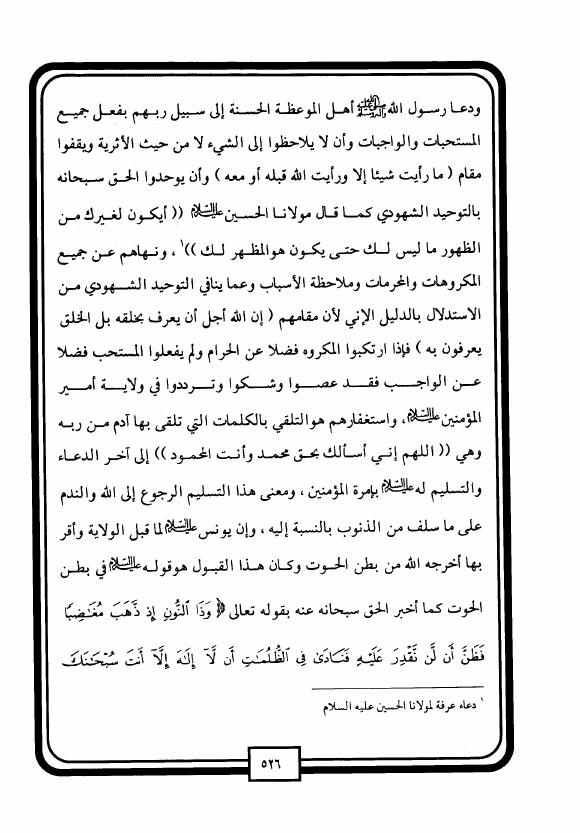 ودعا رسول الله ﷺ أهل الموعظة الحسنة إلى سبيل ربهم بفعل جميع
المستحبات والواجبات وأن لا يلاحظوا إلى الشيء لا من حيث الأثرية ويقفوا
مقام ( ما رأيت شيئا إلا ورأيت الله قبله أو معه ) وأن يوحدوا الحق سبحانه
بالتوحيد الشهودي كما قال مولانا الحسين عليه السلام (( أيكون لغيرك من
الظهور ما ليس لك حتى يكون هوالمظهر لك ))١ ، ونهاهم عن جميع
المكروهات والمحرمات وملاحظة الأسباب وعما ينافي التوحيد الشهودي من
الاستدلال بالدليل الإني لأن مقامهم ( إن الله أجل أن يعرف بخلقه بل الخلق
يعرفون به ) فإذا ارتكبوا المكروه فضلا عن الحرام ولم يفعلوا المستحب فضلا
عن الواجب فقد عصوا وشكوا وترددوا في ولاية أمير
المؤمنين عليه السلام، واستغفارهم هوالتلقي بالكلمات التي تلقى بها آدم من ربه
وهي (( اللهم إني أسألك بحق محمد وأنت المحمود )) إلى آخر الدعاء
والتسليم له عليه السلام بإمرة المؤمنين ، ومعنى هذا التسليم الرجوع إلى الله والندم
على ما سلف من الذنوب بالنسبة إليه ، وإن يونس عليه السلام لما قبل الولاية وأقر
بها أخرجه الله من بطن الحوت وكان هذا القبول هوقوله عليه السلام في بطن
الحوت كما أخبر الحق سبحانه عنه بقوله تعالى ﴿ وَذَا ٱلنُّونِ إِذ ذَّهَبَ مُغَـٰضِبًا
فَظَنَّ أَن لَّن نَّقْدِرَ عَلَيْهِ فَنَادَىٰ فِى ٱلظُّلُمَـٰتِ أَن لَّآ إِلَـٰهَ إِلَّآ أَنتَ سُبْحَـٰنَكَ
١ دعاء عرفة لمولانا الحسين عليه السلام
٥٢٦